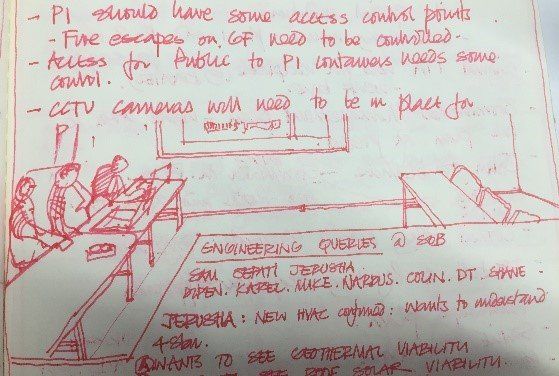 - P1 should have some access control points.
- Fire escapes on GF need to be controlled -
- Access for Public to P1 containers needs some
control.
- CCTV cameras will need to be in place for
P
ENGINEERING QUERIES @ SOB
SAM JERUSHA
DIPEN. KAREL. MIKE. NARDUS. COLIN. DT. SHANE -
JERUSHA: NEW HVAC confirmed: wants to understand
WANTS TO SEE GEOTHERMAL VIABILITY
SEE ROOF SOLAR VIABILITY.